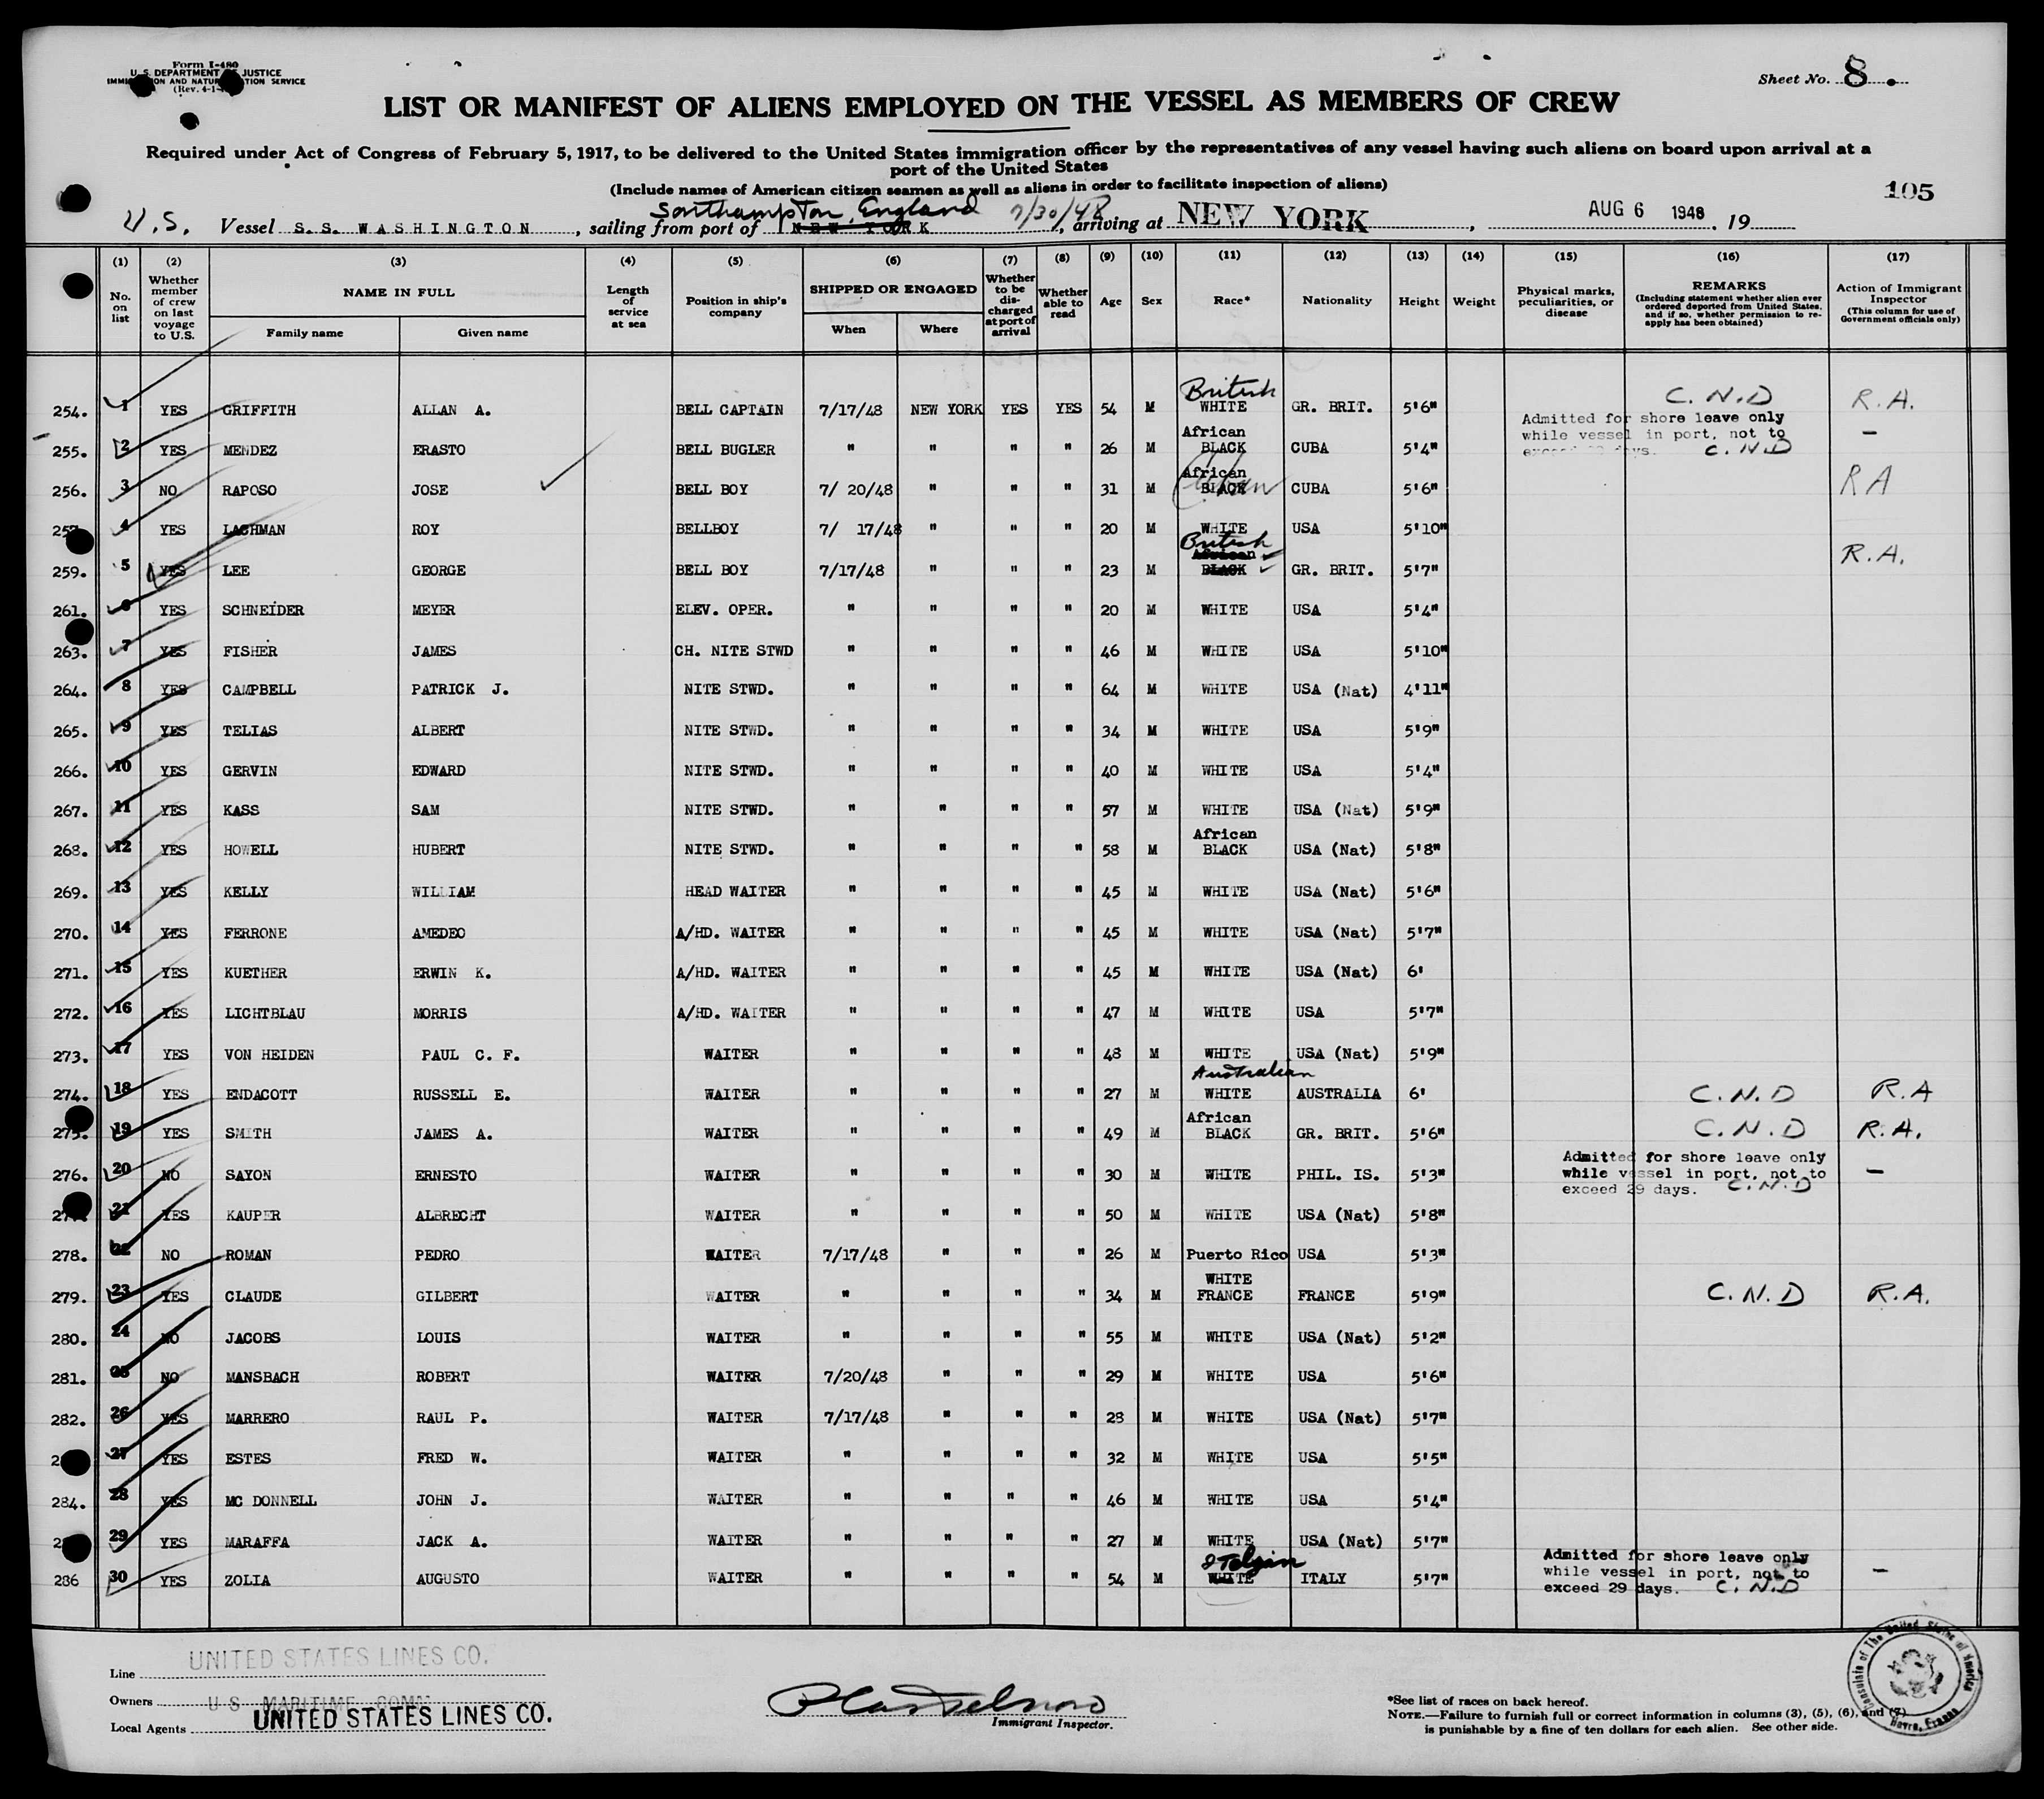 Form I-480
U. S. DEPARTMENT OF JUSTICE
IMMIGRATION AND NATURALIZATION SERVICE
(Rev. 4-1-
Sheet No. 8.
LIST OR MANIFEST OF ALIENS EMPLOYED ON THE VESSEL AS MEMBERS OF CREW
Required under Act of Congress of February 5, 1917, to be delivered to the United States immigration officer by the representatives of any vessel having such aliens on board upon arrival at a
port of the United States
(Include names of American citizen seamen as well as aliens in order to facilitate inspection of aliens)
105
Southampton, England 7/30/48
U.S. Vessel S.S. WASHINGTON, sailing from port of NEW YORK, arriving at NEW YORK, AUG 6 1948, 19
(1) (2) (3) (4) (5) (6) (7) (8) (9) (10) (11) (12) (13) (14) (15) (16) (17)
No. on list
Whether member of crew on last voyage to U.S.
NAME IN FULL
Family name
Given name
Length of service at sea
Position in ship's company
SHIPPED OR ENGAGED
When
Where
Whether to be discharged at port of arrival
Whether able to read
Age
Sex
Race*
Nationality
Height
Weight
Physical marks, peculiarities, or disease
REMARKS
(Including statement whether alien ever ordered deported from United States, and if so, whether permission to reapply has been obtained)
Action of Immigrant Inspector
(This column for use of Government officials only)
254. 1 YES GRIFFITH ALLAN A. BELL CAPTAIN 7/17/48 NEW YORK YES YES 54 M British WHITE GR. BRIT. 5'6" C.N.D R.A.
255. 2 YES MENDEZ ERASTO BELL BUGLER " " " " 26 M African BLACK CUBA 5'4" Admitted for shore leave only while vessel in port, not to exceed days. C.N.D –
256. 3 NO RAPOSO JOSE BELL BOY 7/ 20/48 " " " 31 M African BLACK Cuban CUBA 5'6" RA
257. 4 YES LACHMAN ROY BELLBOY 7/ 17/48 " " " 20 M WHITE USA 5'10"
259. 5 YES LEE GEORGE BELL BOY 7/17/48 " " " 23 M British African BLACK GR. BRIT. 5'7" R.A.
261. 6 YES SCHNEIDER MEYER ELEV. OPER. " " " " 20 M WHITE USA 5'4"
263. 7 YES FISHER JAMES CH. NITE STWD " " " " 46 M WHITE USA 5'10"
264. 8 YES CAMPBELL PATRICK J. NITE STWD. " " " " 64 M WHITE USA (Nat) 4'11"
265. 9 YES TELIAS ALBERT NITE STWD. " " " " 34 M WHITE USA 5'9"
266. 10 YES GERVIN EDWARD NITE STWD. " " " " 40 M WHITE USA 5'4"
267. 11 YES KASS SAM NITE STWD. " " " " 57 M WHITE USA (Nat) 5'9"
268. 12 YES HOWELL HUBERT NITE STWD. " " " " 58 M African BLACK USA (Nat) 5'8"
269. 13 YES KELLY WILLIAM HEAD WAITER " " " " 45 M WHITE USA (Nat) 5'6"
270. 14 YES FERRONE AMEDEO A/HD. WAITER " " " " 45 M WHITE USA (Nat) 5'7"
271. 15 YES KUETHER ERWIN K. A/HD. WAITER " " " " 45 M WHITE USA (Nat) 6'
272. 16 YES LICHTBLAU MORRIS A/HD. WAITER " " " " 47 M WHITE USA 5'7"
273. 17 YES VON HEIDEN PAUL C. F. WAITER " " " " 48 M WHITE USA (Nat) 5'9"
274. 18 YES ENDACOTT RUSSELL E. WAITER " " " " 27 M Australian WHITE AUSTRALIA 6' C.N.D R.A
275. 19 YES SMITH JAMES A. WAITER " " " " 49 M African BLACK GR. BRIT. 5'6" C.N.D R.A.
276. 20 NO SAYON ERNESTO WAITER " " " " 30 M WHITE PHIL. IS. 5'3" Admitted for shore leave only while vessel in port, not to exceed 29 days. C.N.D –
277. 21 YES KAUPER ALBRECHT WAITER " " " " 50 M WHITE USA (Nat) 5'8"
278. 22 NO ROMAN PEDRO WAITER 7/17/48 " " " 26 M Puerto Rico USA 5'3"
279. 23 YES CLAUDE GILBERT WAITER " " " " 34 M WHITE FRANCE FRANCE 5'9" C.N.D R.A.
280. 24 NO JACOBS LOUIS WAITER " " " " 55 M WHITE USA (Nat) 5'2"
281. 25 NO MANSBACH ROBERT WAITER 7/20/48 " " " 29 M WHITE USA 5'6"
282. 26 YES MARRERO RAUL P. WAITER 7/17/48 " " " 28 M WHITE USA (Nat) 5'7"
2 27 YES ESTES FRED W. WAITER " " " " 32 M WHITE USA 5'5"
284. 28 YES MC DONNELL JOHN J. WAITER " " " " 46 M WHITE USA 5'4"
2 29 YES MARAFFA JACK A. WAITER " " " " 27 M WHITE USA (Nat) 5'7"
286 30 YES ZOLIA AUGUSTO WAITER " " " " 54 M Italian WHITE ITALY 5'7" Admitted for shore leave only while vessel in port, not to exceed 29 days. C.N.D –
Line UNITED STATES LINES CO.
Owners U S MARITIME COMM
Local Agents UNITED STATES LINES CO.
Immigrant Inspector.
*See list of races on back hereof.
NOTE.—Failure to furnish full or correct information in columns (3), (5), (6), and (7)
is punishable by a fine of ten dollars for each alien. See other side.
Consulate of The United States of America
Havre, France